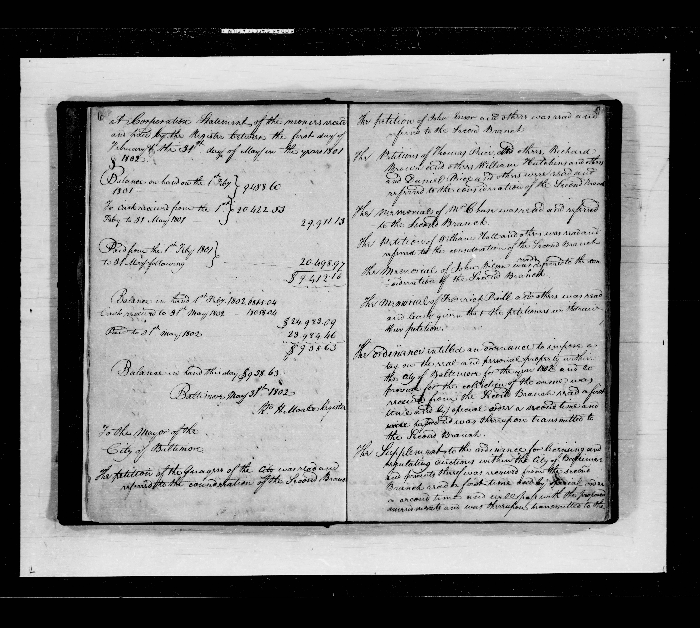 at Corporation Statement of the monies recd
and paid by the Register between the first day of
February & the 31st day of May in the years 1801
& 1802.
Balance on hand on the 1st Feby
1801
9488 60
To cash received from the 1st
Feby to 31 May 1801
20422 53
29.911 13
Paid from the 1st Feby 1801
to 31 May following
20.498.97
$9412.16
Balance in hand 1st Feby 1802
Cash received to 31st May 1802
$24.923.09
Paid to 31st May 1802
23.984 46
$938 63
Balance in hand this day $938.63
Baltimore May 31st 1802
Register
To the Mayor of the
City of Baltimore
The petition of the of the City was read and
referred to the consideration of the Second Branch
The petition of John and others was read and
referred to the Second Branch
The Petitions of Thomas Price and others, Richard
Brown and others William Hutchins and others
and Daniel and others were read and
referred to the consideration of the Second Branch
The Memorial of was read and referred
to the Second Branch
The Petition of William Hall and others was read and
referred to the consideration of the Second Branch
The Memorial of John was read & referred to the con
sideration of the Second Branch
The Memorial of Frederick and others was read
and leave given that the petitioners withdraw
their petition.
The ordinance entitled an ordinance to impose a
tax on the real and personal property within
the City of Baltimore for the year 1802 and to
provide for the collection of the same, was
received from the Second Branch read a first
time and by special order a second time and
was thereupon transmitted to
the Second Branch.
The Supplement to the ordinance for licensing and
regulating auctions within the City of Baltimore
and precincts thereof was received from the second
Branch read a first time and by special order
a second time and will pass with the proposed
amendments and was thereupon transmitted to the